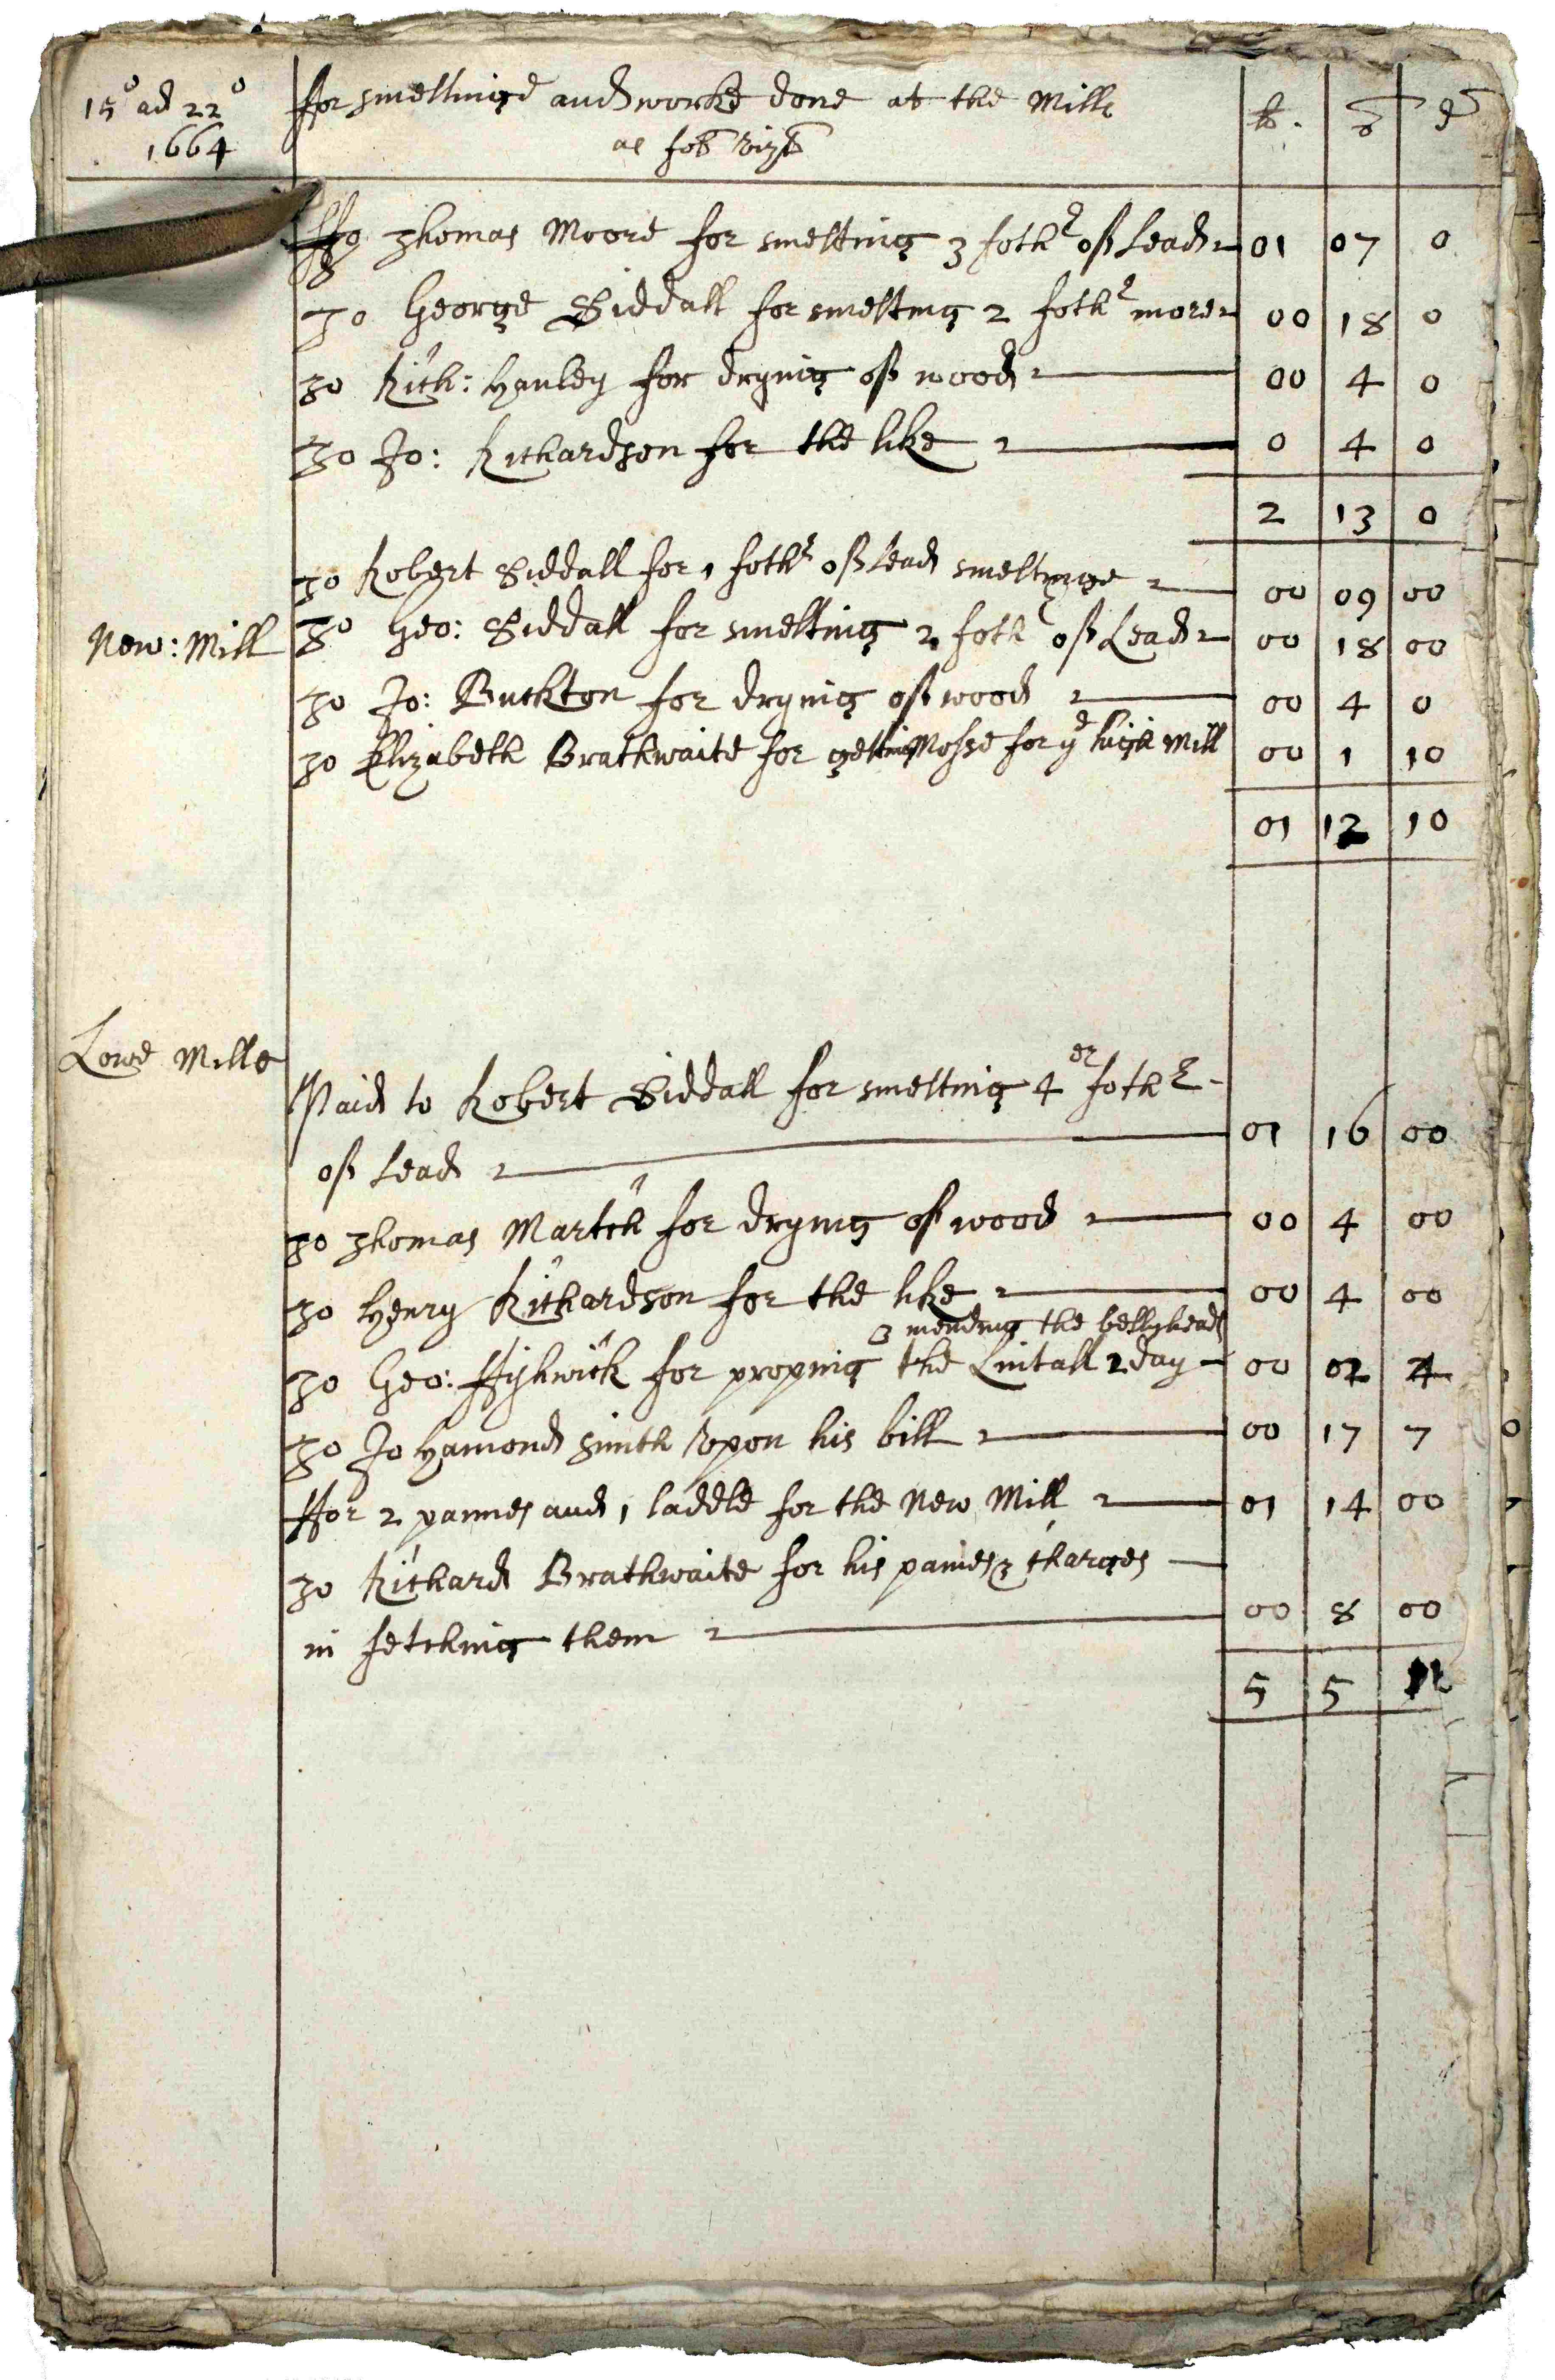 15° ad 22° 1664
ffor smeltinge and worke done at the Mills
as foll vizt
li. s d
To Thomas Moore for smelting 3 fothr of Lead 01 07 0
To George Siddall for smelting 2 fothr more 00 18 0
To Rich: Hanley for drying of wood 00 4 0
To Jo: Richardson for the like 0 4 0
2 13 0
To Robert Siddall for 1 fothr of Lead smeltinge 00 09 00
New: Mill To Geo: Siddall for smelting 2 fothr of Lead 00 18 00
To Jo: Buckton for drying of wood 00 4 0
To Elizabeth Brathwaite for getting Mosse for ye high Mill 00 1 10
01 12 10
Lowe Mille
Paid to Robert Siddall for smelting 4er fothr
of Lead 01 16 00
To Thomas Martch for drying of wood 00 4 00
To Henry Richardson for the like 00 4 00
& mending the bellyhead
To Geo: for proping the Lintall 2 day 00 02 4
To Jo Hamond smith upon his bill 00 17 7
ffor 2 pannes and 1 laddle for the New Mill 01 14 00
To Richard Brathwaite for his paines & charges
in fetching them 00 8 00
5 5 11